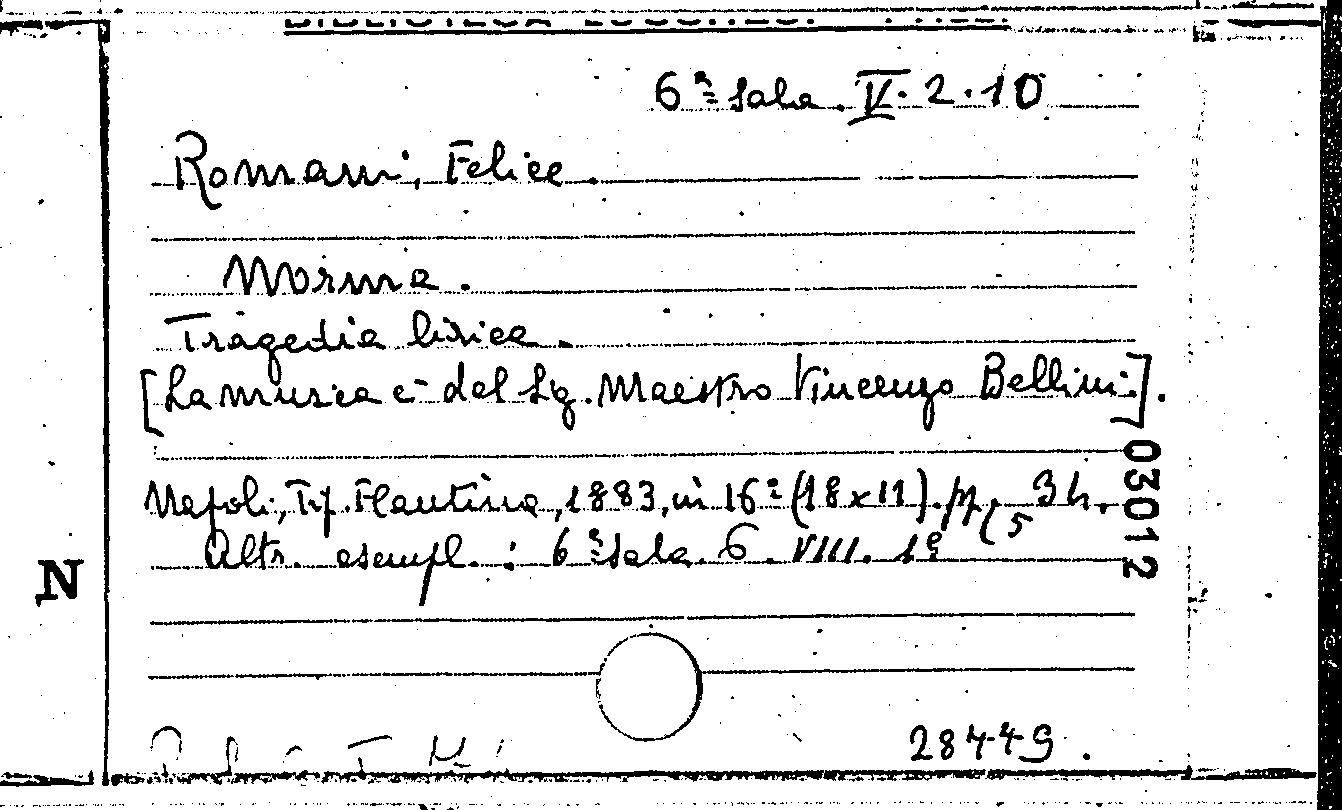 6ª sala. V. 2. 10
Romani, Felice.
Norma.
Tragedia lirica.
[La musica è del Sig. Maestro Vincenzo Bellini].
Napoli, Tip. Flautina, 1883, in 16º (18x11). pp. 34.
5
Altr. esempl.: 6ª sala. 6. VIII. 1
03012
N
28449.